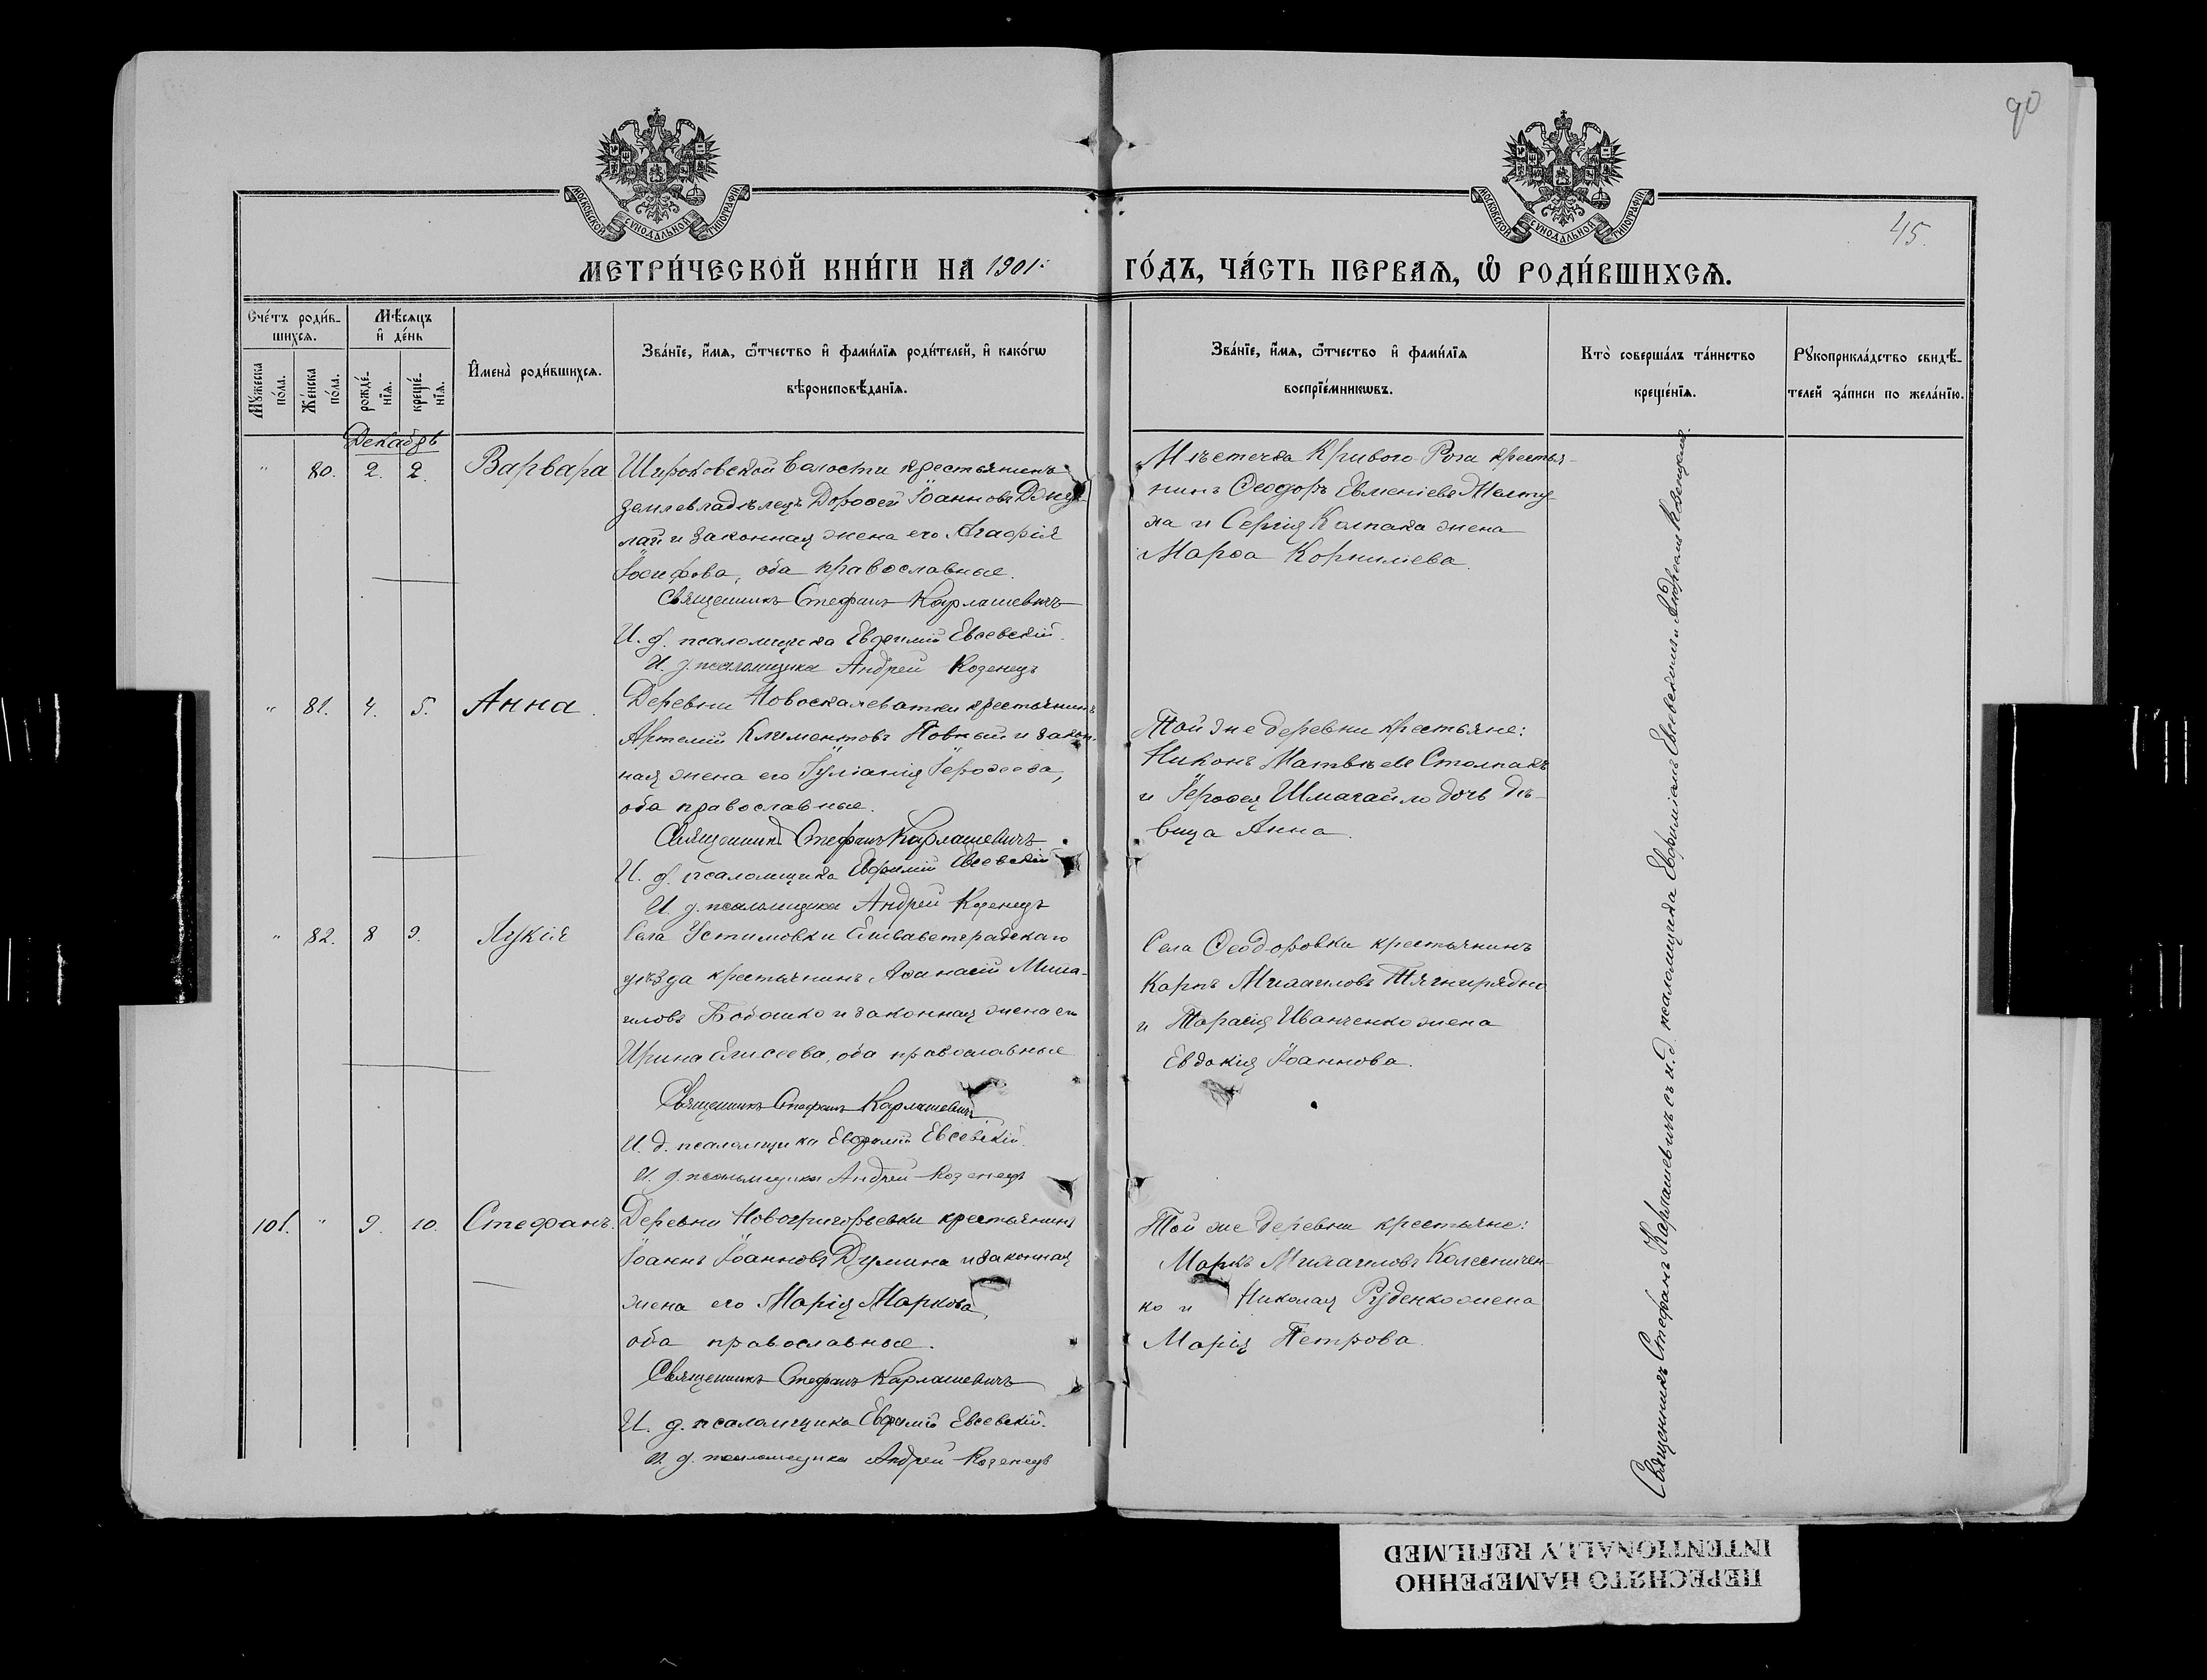 90
45.
МОСКОВСКОЙ СѴНОДАЛЬНОЙ ТИПОГРАФІИ
МОСКОВСКОЙ СѴНОДАЛЬНОЙ ТИПОГРАФІИ
МЕТРИ́ЧЕСКОЙ КНИ́ГИ НА 1901: ГО́ДЪ, ЧА́СТЬ ПЕРВАѦ, Ѡ҆ РОДИ́ВШИХСѦ.
Сче́тъ роди́в-
шихсѧ.
Мѣ́сѧцъ
и҆ де́нь
Мꙋ́жеска по́ла.
Же́нска по́ла.
рожде́-
нїѧ.
креще́-
нїѧ.
И҆мена̀ роди́вшихсѧ.
Зва́нїе, и҆́мѧ, ѻ҆́тчество и҆ фами́лїѧ роди́телей, и҆ како́гѡ
вѣроисповѣ́данїѧ.
Зва́нїе, и҆́мѧ, ѻ҆́тчество и҆ фами́лїѧ
воспрїе́мникѡвъ.
Кто̀ соверша́лъ та́инство
креще́нїѧ.
Рꙋкоприкла́дство свидѣ́-
телей за́писи по жела́нїю.
Декабрь
" 80. 2. 2. Варвара
Широковской волости крестьянинъ
землевладѣлецъ Дорофей Іоанновъ
лай и законная жена его Агафія
Іосифова, оба православные.
Священникъ Стефанъ Карлашевичъ
И. д. псаломщика Евфимій Евсевскій.
И. д. псаломщика Андрей Козенецъ
Мѣстечка Кривого-Рога крестья-
нинъ Ѳеодоръ Евменіевъ Желту-
ха и Сергія Колпака жена
Марѳа Корниліева.
" 81. 4. 5. Анна.
Деревни Новоскалеватки крестьянинъ
Артемій Климентовъ Новный и закон-
ная жена его Іуліанія Іероѳеева,
оба православные.
Священникъ Стефанъ Карлашевичъ
И. д. псаломщика Евфимій Евсевскій
И. д. псаломщика Андрей Козенецъ
Той же деревни крестьяне:
Никонъ Матвѣевъ Столпакъ
и Іероѳея Шмагайло дочь дѣ-
вица Анна.
" 82. 8 9. Лукія
Села Устимовки Елисаветградскаго
уѣзда крестьянинъ Аѳанасій Миха-
иловъ Бобошко и законная жена его
Ирина Елисеева, оба православные
Священникъ Стефанъ Карлашевичъ
И. д. псаломщика Евфимій Евсевскій.
И. д. псаломщика Андрей Козенецъ
Села Ѳеодоровки крестьянинъ
Карпъ Михаиловъ Тягнирядно
и Тарасія Иванченко жена
Евдокія Іоаннова.
101. " 9. 10. Стефанъ.
Деревни Новогригорьевки крестьянинъ
Іоаннъ Іоанновъ Думина и законная
жена его Марія Маркова,
оба православные.
Священникъ Стефанъ Карлашевичъ
И. д. псаломщика Евфимій Евсевскій.
И. д. псаломщика Андрей Козенецъ
Той же деревни крестьяне:
Маркъ Михаиловъ Колесничен-
ко и Николая Руденко жена
Марія Петрова.
Священникъ Стефанъ Карлашевичъ съ и. д. псаломщика Евфиміемъ Евсевскимъ и Андреемъ Козенцемъ.
ПЕРЕСНЯТО НАМЕРЕННО
INTENTIONALLY REFILMED